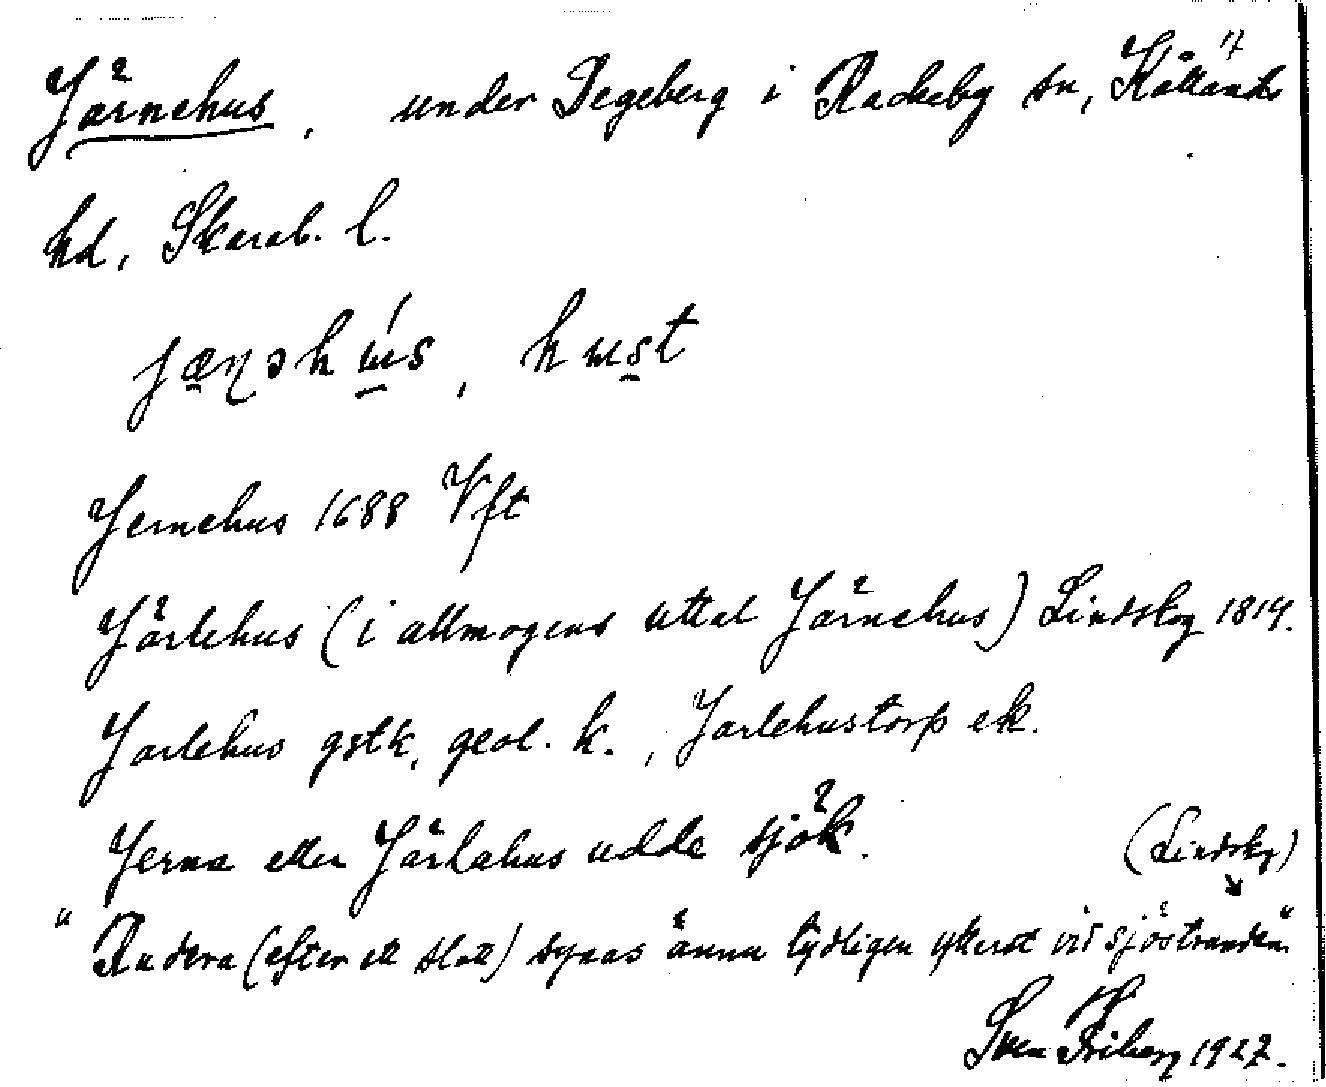 Järnehus, under Degeberg i Rackeby sn, Kållands
hd, Skarab. l.
Jernehus 1688 Vft
Järlehus (i allmogens uttal Järnehus) Lindskog 1814.
Jarlehus gstk, geol. k., Jarlehustorp ek.
Jerna eller Järlahus udde sjök.
(Lindskog)
"Rudera (efter ett slott) synas ännu tydligen ytterst vid sjöstranden"
Sven Friberg 1927.